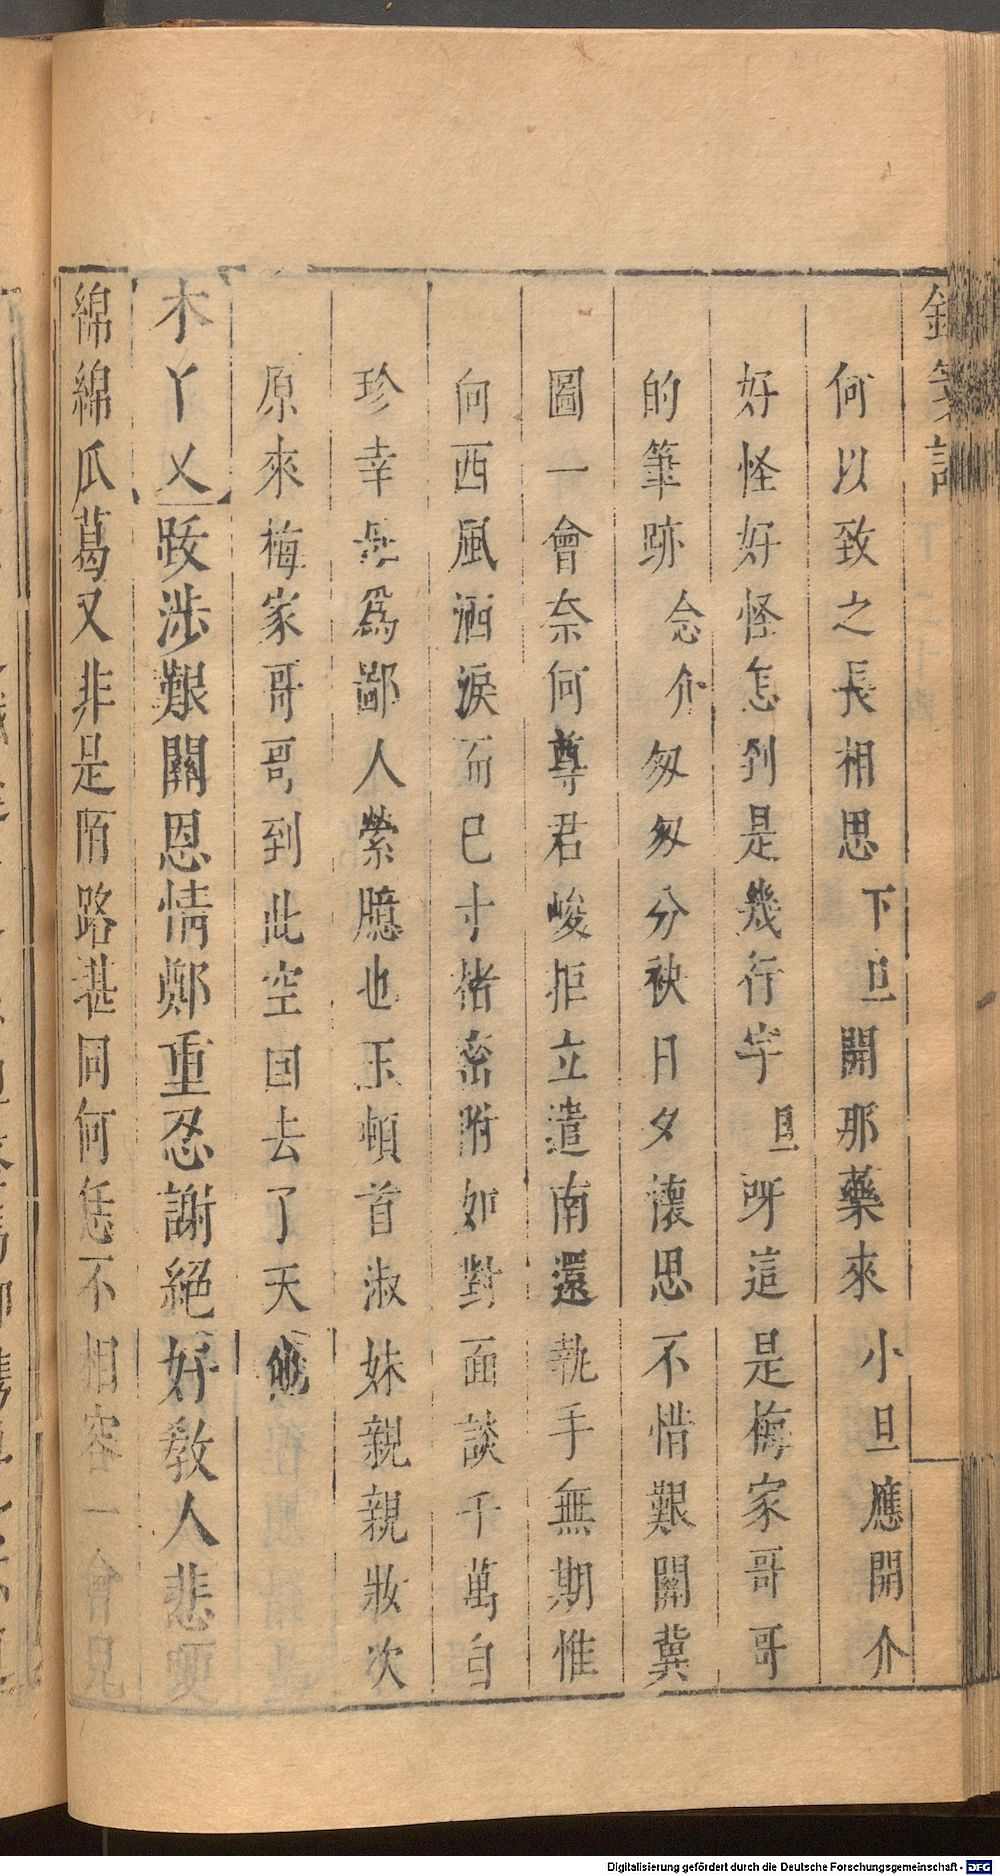 何以致之長相思下旦開那藥來小旦應開介
好怪好怪怎到是幾行字旦呀這是梅家哥哥
的筆跡念介匆匆分袂日夕懷思不惜艱關冀
圖一會奈何尊君峻拒立遣南還執手無期惟
向西風洒淚而已寸楮密附如對面談千萬自
珍幸毋爲鄙人縈臆也玉頓首淑妹親親妝次
原來梅家哥哥到此空回去了天
木丫叉跋涉艱關恩情鄭重忍謝絕好教人悲哽
綿綿瓜葛又非是陌路堪同何恁不相容一會見
Digitalisierung gefördert durch die Deutsche Forschungsgemeinschaft - DFG